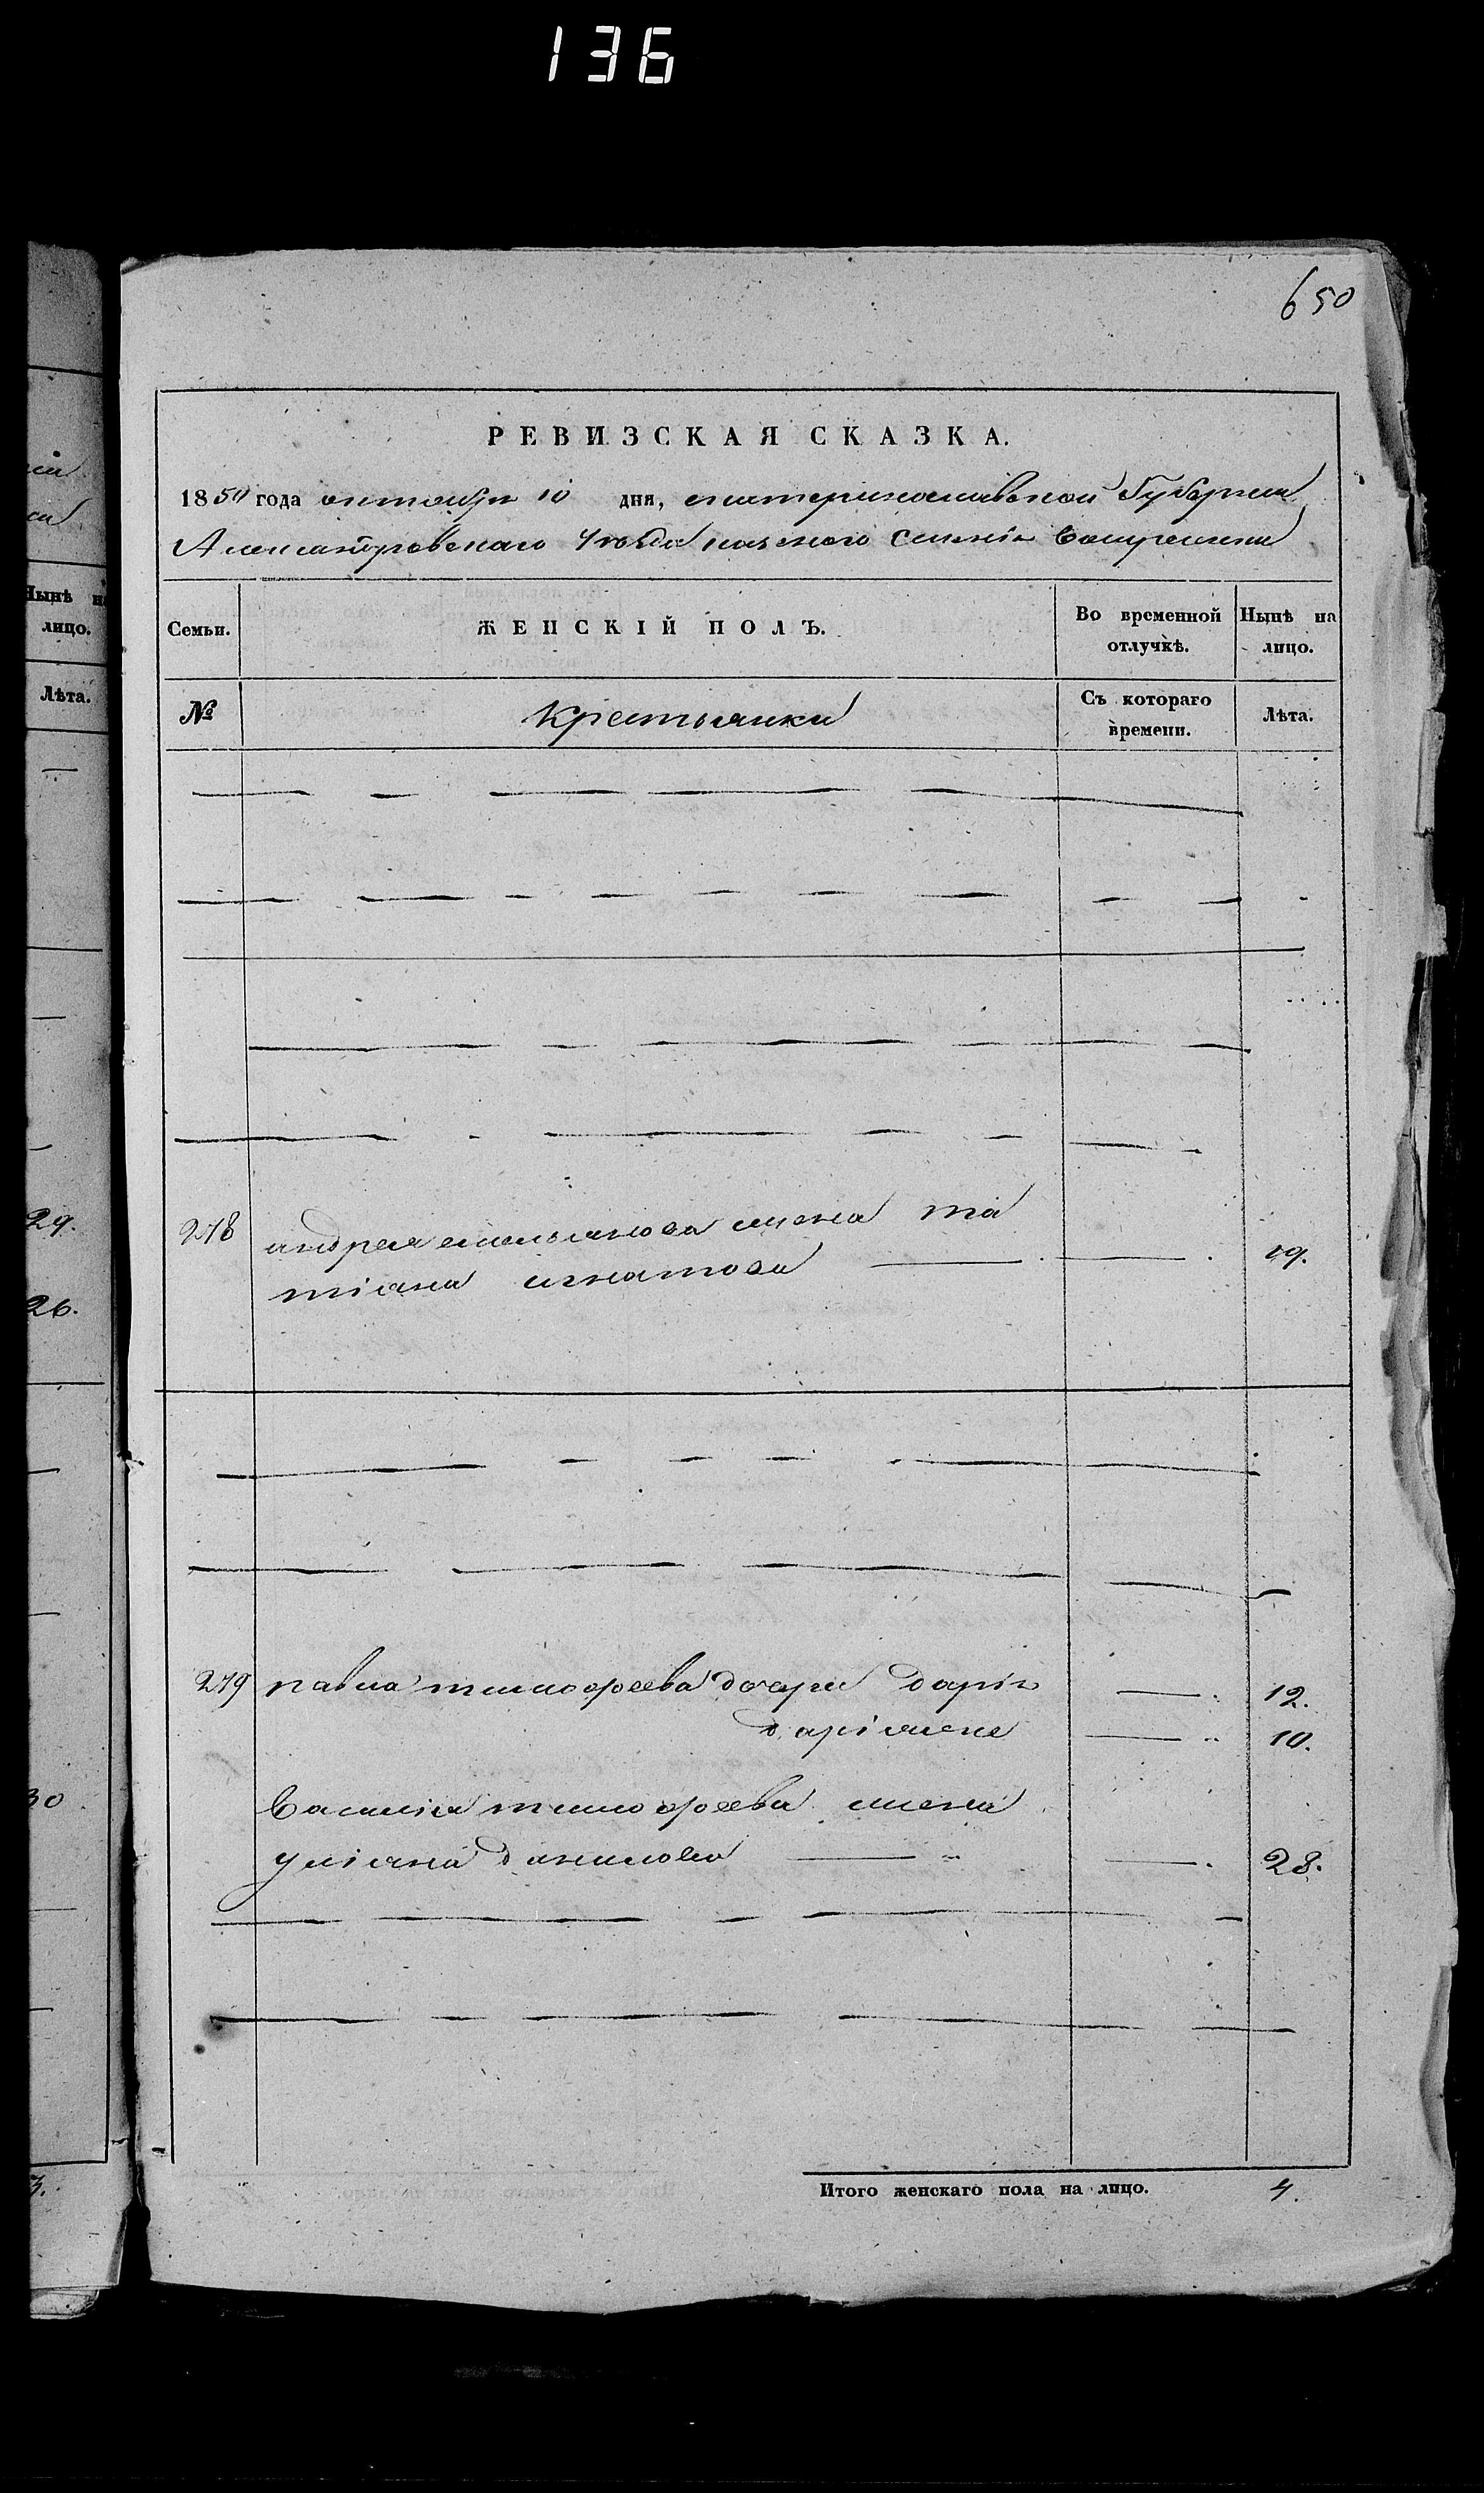 136
650
РЕВИЗСКАЯ СКАЗКА.
1850 года октября 10 дня, екатеринославской Губернии
Александровского уезда казеного Селенія Воскресенки
Семьи. ЖЕНСКІЙ ПОЛЪ. Во временной отлучкѣ. Нынѣ на лицо.
№ Крестьянки Съ котораго времени. Лѣта.
278 андрея емельянова жена та
тіана игнатова 19.
279 павла тимофеева дочери даріа 12.
10.
Василіа тимофеева жена
уліана данилова 28.
Итого женскаго пола на лицо. 4.
Нынѣ на
лицо.
Лѣта.
29.
26.
30
3.